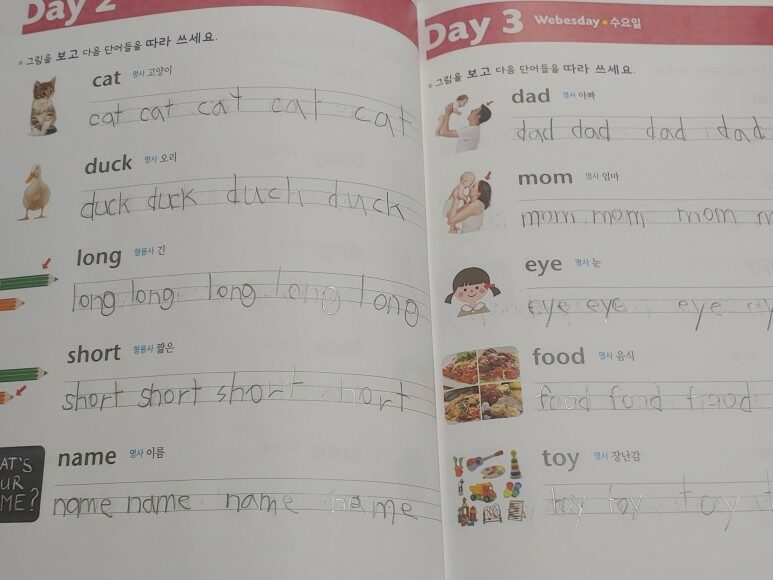 Day 2
* 그림을 보고 다음 단어들을 따라 쓰세요.
cat 명사 고양이
cat cat cat cat cat
duck 명사 오리
duck duck duck duck
long 형용사 긴
long long long long long
short 형용사 짧은
short short short short
AT'S
UR
ME?
name 명사 이름
name name name name
Day 3 Webesday • 수요일
* 그림을 보고 다음 단어들을 따라 쓰세요.
dad 명사 아빠
dad dad dad dad
mom 명사 엄마
mom mom mom
eye 명사 눈
eye eye eye ey
food 명사 음식
food food food
toy 명사 장난감
toy toy toy t